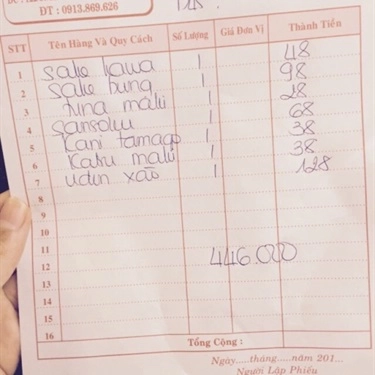 ĐT : 0913.869.626
STT Tên Hàng Và Quy Cách Số Lượng Giá Đơn Vị Thành Tiền
1 sake kawa 1 48
2 sake bung 1 98
3 tuna maki 1 28
4 1 68
5 Kani tamago 1 38
6 maki 1 38
7 udon xào 1 128
8
9
10
11
12 446.000
13
14
15
16
Tổng Cộng :
Ngày.....tháng.....năm 201...
Người Lập Phiếu